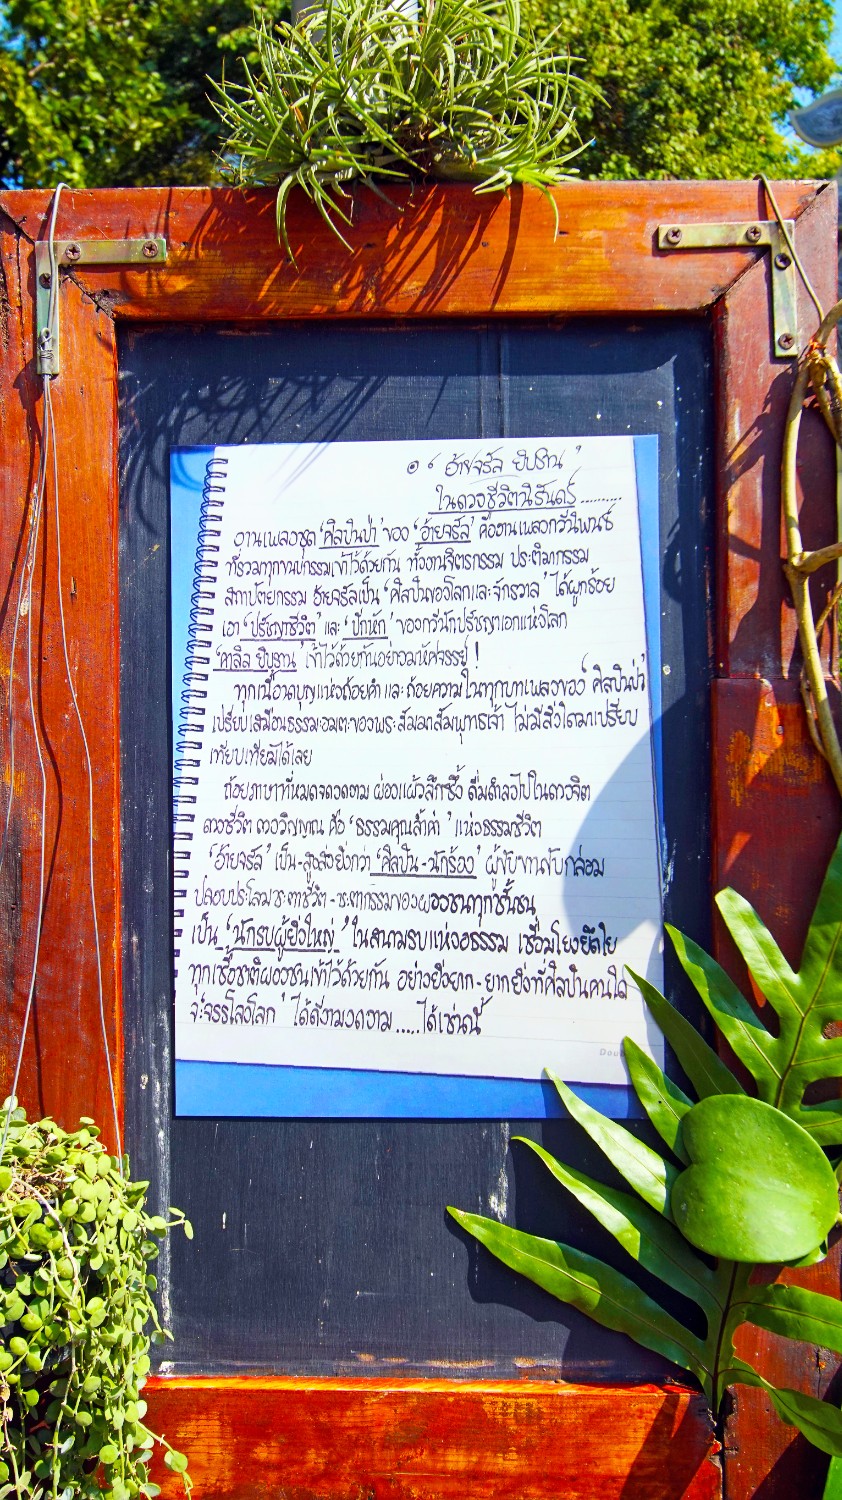 ๏ ‘ อ้ายจรัล ยิบราน ’
ในดวงชีวิตนิรันดร์..........
งานเพลงชุด ‘ศิลปินป่า’ ของ ‘อ้ายจรัล’ คืองานเพลงกวีนิพนธ์
ที่รวมทุกงาน เข้าไว้ด้วยกัน ทั้งงานจิตรกรรม ประติมากรรม
สถาปัตยกรรม อ้ายจรัลเป็น ‘ศิลปินของโลกและจักรวาล’ ได้ผูกร้อย
เอา ‘ปรัชญาชีวิต’ และ ‘ปีกหัก’ ของกวีนักปรัชญาเอกแห่งโลก
‘คาลิล ยิบราน’ เข้าไว้ด้วยกันอย่างมหัศจรรย์ !
ทุกเนื้อนาบุญแห่งถ้อยคำ และถ้อยความในทุกบทเพลงของ ‘ศิลปินป่า’
เปรียบเสมือนธรรมะอมตะของพระสัมมาสัมพุทธเจ้า ไม่มีสิ่งใดมาเปรียบ
เทียบเทียมได้เลย
ถ้อยภาษาที่หมดจดงดงาม ผ่องแผ้วลึกซึ้ง ดื่มด่ำลงไปในดวงจิต
ดวงชีวิต ดวงวิญญาณ คือ ‘ธรรมคุณล้ำค่า’ แห่งธรรมชีวิต
‘อ้ายจรัล’ เป็น-สูงส่งยิ่งกว่า ‘ศิลปิน-นักร้อง’ ผู้ขับขานขับกล่อม
ปลอบประโลมชะตาชีวิต-ชะตากรรมของผองชนทุกชั้นชน
เป็น ‘นักรบผู้ยิ่งใหญ่’ ในสนามรบแห่งอธรรม เชื่อมโยงยึดใย
ทุกเชื้อชาติผองชนเข้าไว้ด้วยกัน อย่างยิ่งยาก-ยากยิ่งที่ศิลปินคนใด
จะ ‘จรรโลงโลก’ ได้ดีงามงดงาม.....ได้เช่นนี้